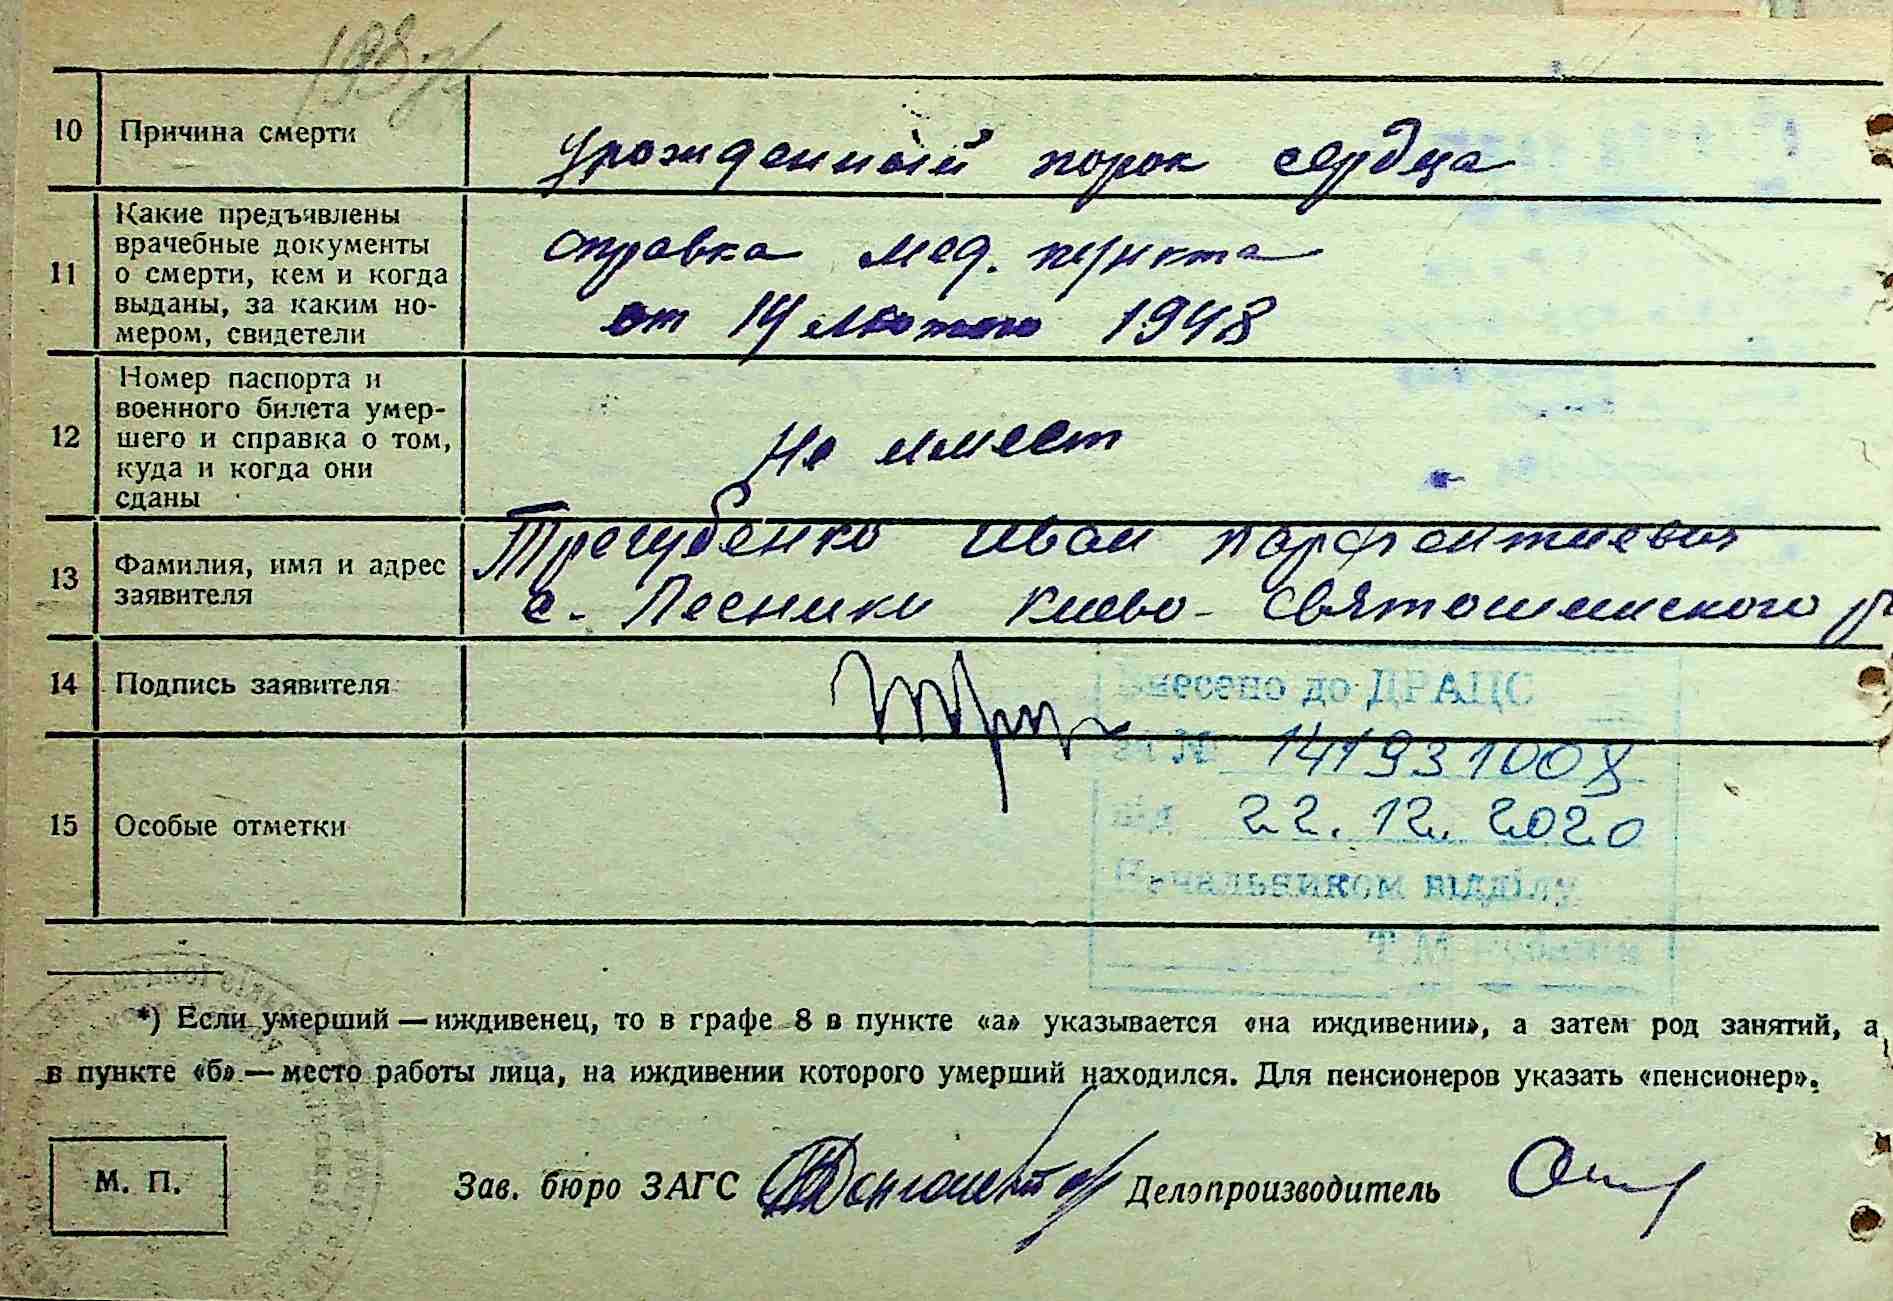 10 Причина смерти
урожденный порок сердца
11 Какие предъявлены
врачебные документы
о смерти, кем и когда
выданы, за каким но-
мером, свидетели
справка мед. пункта
от 14 лютого 1948
12 Номер паспорта и
военного билета умер-
шего и справка о том,
куда и когда они
сданы
Не имеет
13 Фамилия, имя и адрес
заявителя
Трегубенко Иван Парфентиевич
с. Лесники Киево-Святошинского р
14 Подпись заявителя
Внесено до ДРАЦС
за № 141931008
від 22.12.2020
15 Особые отметки
Начальником відділу
*) Если умерший — иждивенец, то в графе 8 в пункте «а» указывается «на иждивении», а затем род занятий, а
в пункте «б» — место работы лица, на иждивении которого умерший находился. Для пенсионеров указать «пенсионер».
М. П.
Зав. бюро ЗАГС
Делопроизводитель